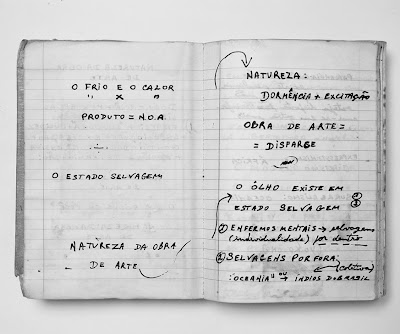 O FRIO E O CALOR
" X "
PRODUTO = N.O.A.
O ESTADO SELVAGEM
NATUREZA DA OBRA
DE ARTE
NATUREZA:
DORMÊNCIA + EXCITAÇÃO
OBRA DE ARTE =
= DISFARCE
O ÓLHO EXISTE EM
ESTADO SELVAGEM ① ②
① ENFERMOS MENTAIS → selvagens
(individualidade) por dentro
② SELVAGENS POR FORA
(coletiva)
"OCEANIA" ou → INDIOS DO BRASIL